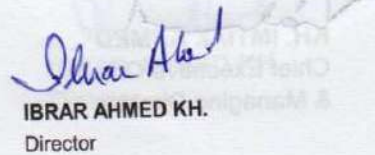 Ibrar Ahmed
IBRAR AHMED KH.
Director